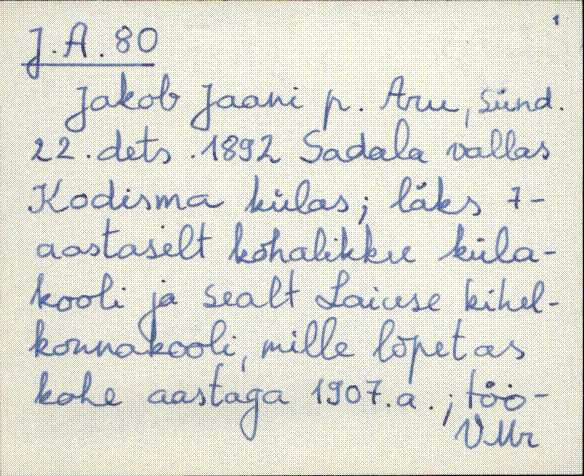 1
J.A. 80
Jakob Jaani p. Aru, sünd.
22. dets. 1892 Sadala vallas
Kodisma külas; läks 7-
aastaselt kohalikku küla-
kooli ja sealt Laiuse kihel-
konnakooli, mille lõpetas
kohe aastaga 1907.a.; töö-
VMr